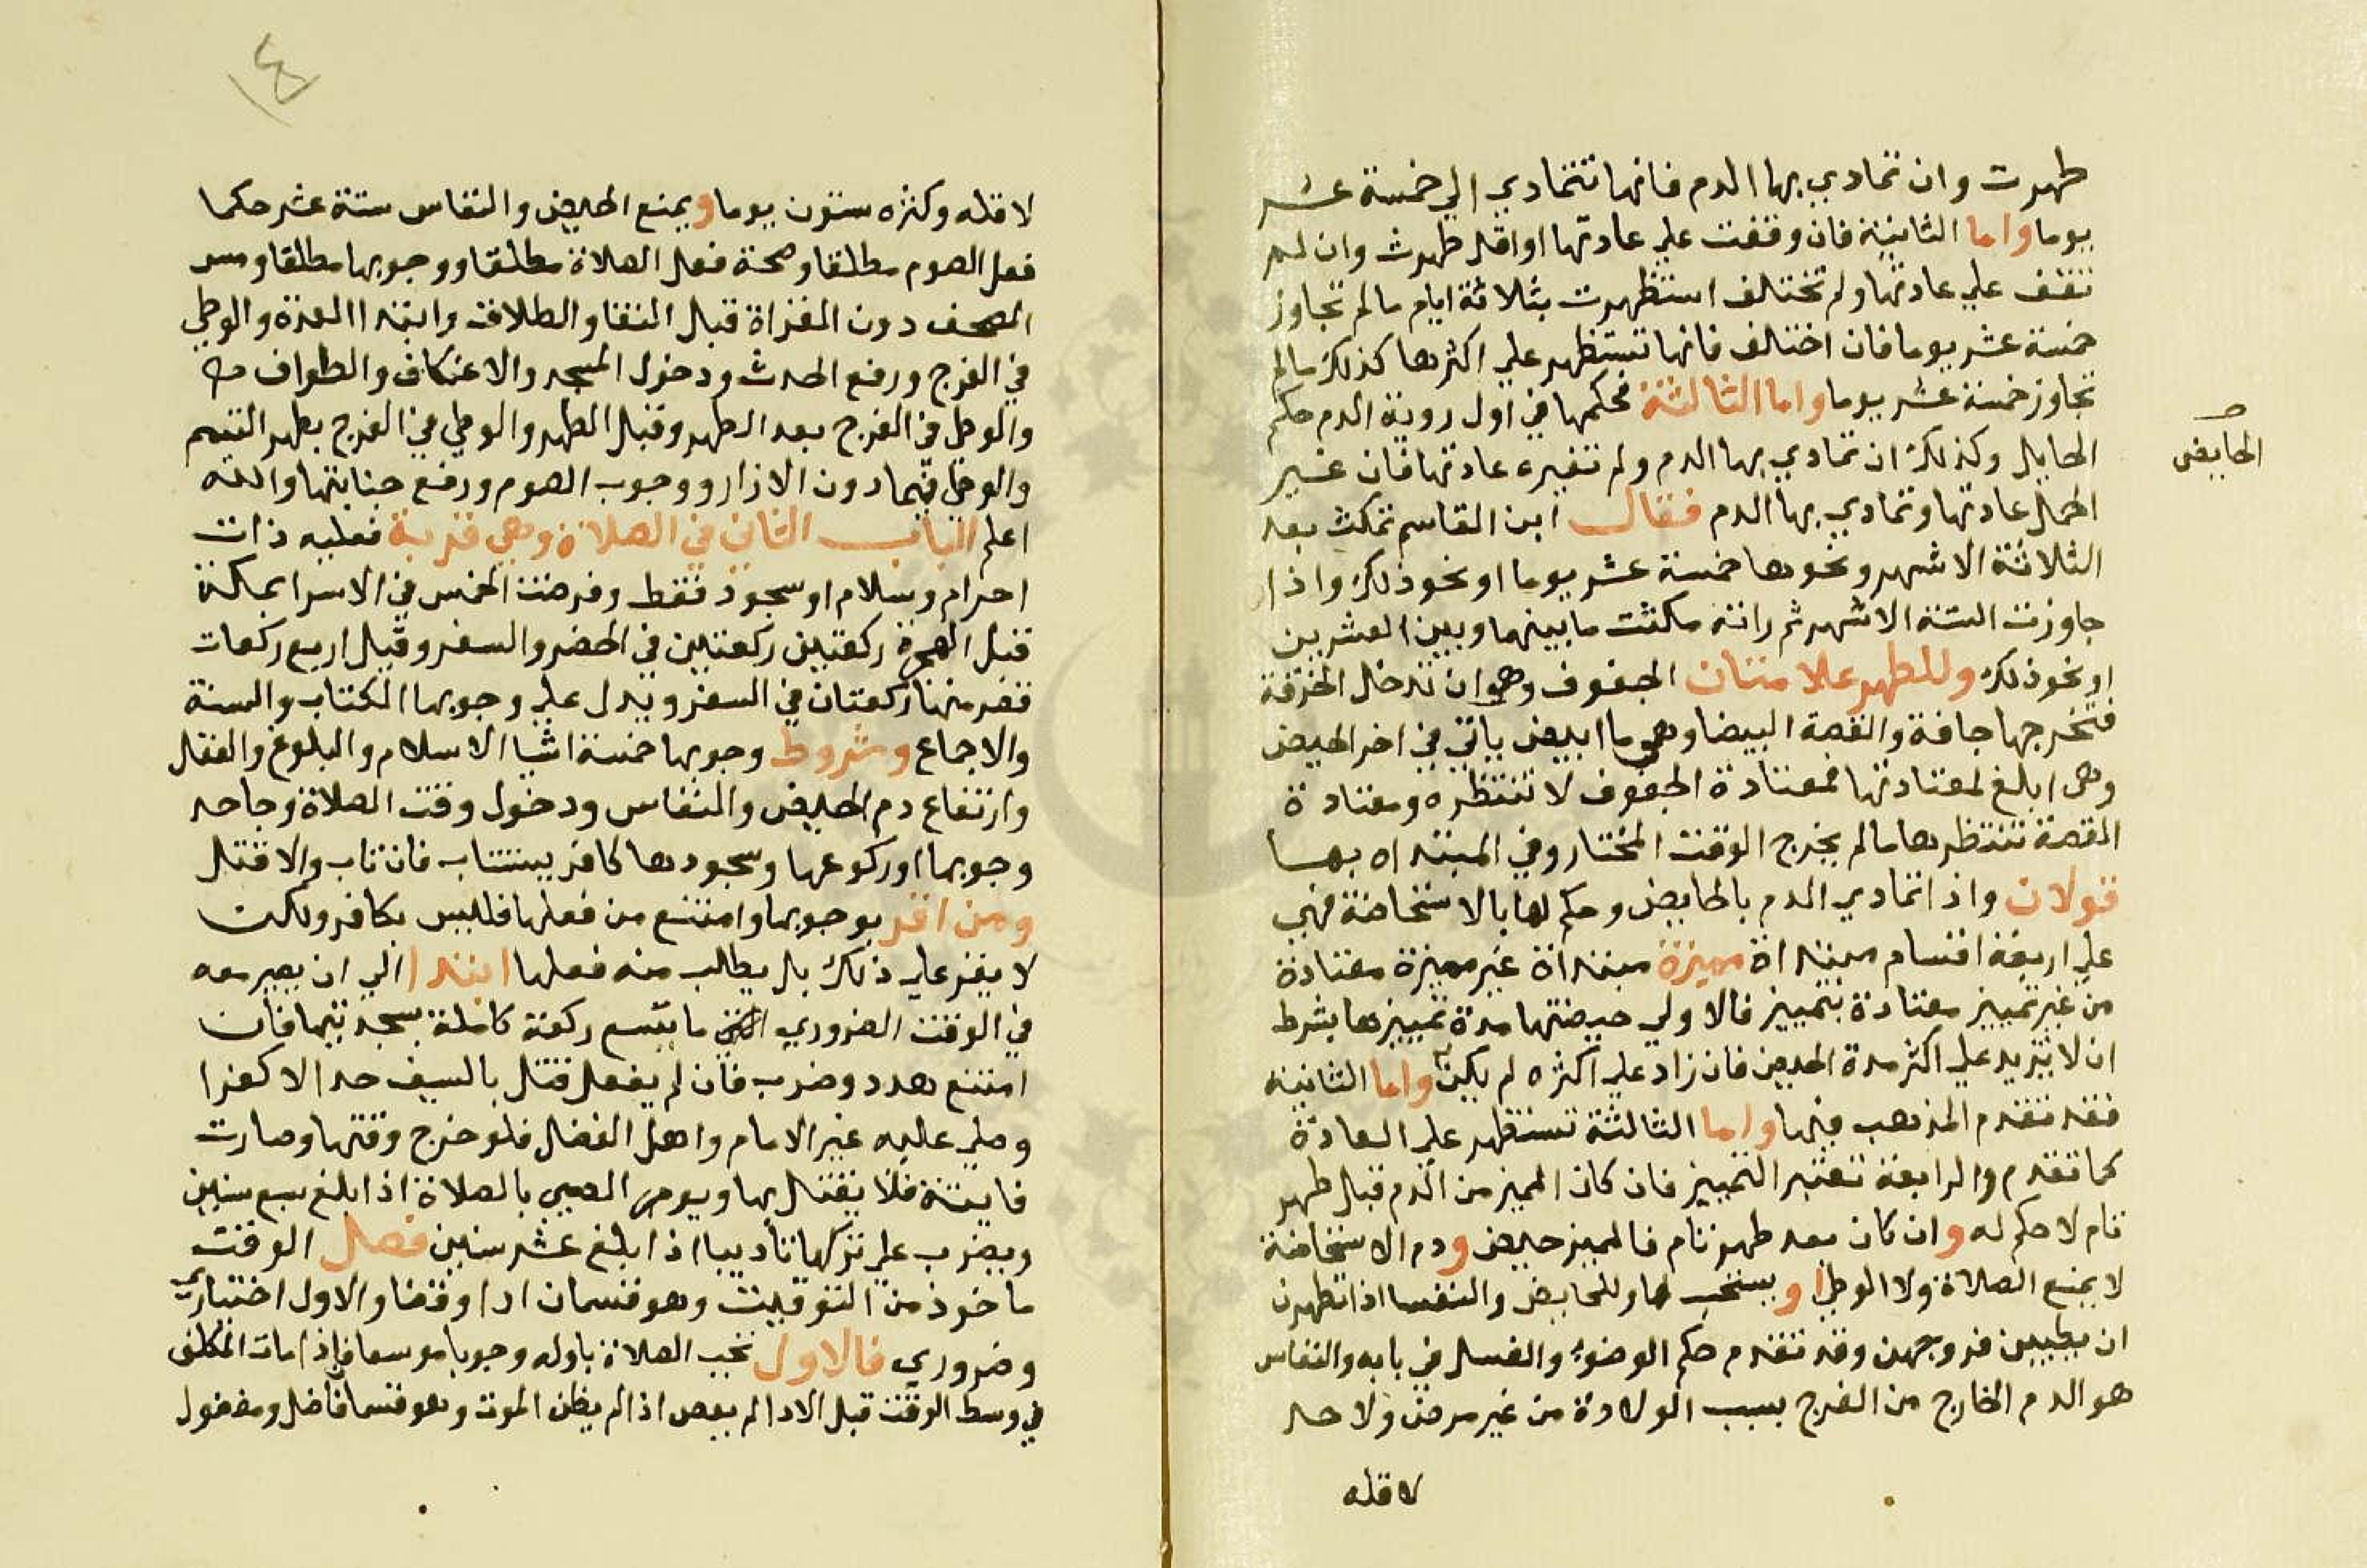 طهرت وان تمادي بها الدم فانها تتمادي الي خمسة عشر
يوما واما الثانية فان وقفت علي عادتها او اقل طهرت وان لم
تقف علي عادتها ولم تختلف استظهرت بثلاثة ايام مالم تجاوز
خمسة عشر يوما فان اختلف فانها تستظهر علي اكثرها كذلك مالم
تجاوز خمسة عشر يوما واما الثالثة فحكمها في اول روية الدم حكم
الحايل وكذلك ان تمادي بها الدم ولم تغيره عادتها فان غير
الحايض
الحمل عادتها وتمادي بها الدم فقال ابن القاسم تمكث بعد
الثلاثة الاشهر ونحوها خمسة عشر يوما او نحو ذلك واذا
جاوزت الستة الاشهر ثم راته مكثت ما بينها وبين العشرين
او نحو ذلك وللطهر علامتان الجفوف وهي ان تدخل الخرقة
فتخرجها جافة والقصة البيضا وهي ما ابيض ياتي في اخر الحيض
وهي ابلغ لمعتادتها فمعتادة الجفوف لا تنتظره ومعتادة
القصة تنتظرها مالم يخرج الوقت المختار وفي المبتداه بها
قولان واذا تمادي الدم بالحايض وحكم لها بالاستحاضة فهي
علي اربعة اقسام مبتداة مميزة مبتداة غير مميزة معتادة
من غير تمييز معتادة بتمييز فالاولي حيضتها مدة تمييزها بشرط
ان لا يزيد علي اكثر مدة الحيض فان زاد علي اكثره لم يكن واما الثانية
فقد تقدم المذهب فيها واما الثالثة تستظهر علي العادة
كما تقدم والرابعة تعتبر التمييز فان كان المميز من الدم قبل طهر
تام لا حكم له وان كان بعد طهر تام فالمميز حيض ودم الاستحاضة
لا يمنع الصلاة ولا الوطي ويستحب لها وللحايض والنفسا اذا تطهرن
ان يطيبن فروجهن وقد تقدم حكم الوضوء والغسل في بابه والنفاس
هو الدم الخارج من الفرج بسبب الولادة من غير مرض ولا حد
لاقله
لاقله وكثره ستون يوما ويمنع الحيض والنفاس ستة عشر حكما
فعل الصوم مطلقا وصحة فعل الصلاة مطلقا ووجوبها مطلقا ومس
المصحف دون القراة قبل النقا والطلاق وابتدا العدة والوطي
في الفرج ورفع الحدث ودخول المسجد والاعتكاف والطواف
والوطي في الفرج بعد الطهر وقبل الطهر والوطي في الفرج بطهر التيمم
والوطي فيما دون الازار ووجوب الصوم ورفع جنابتها والله
اعلم الباب الثاني في الصلاة وهي قربة فعليه ذات
احرام وسلام او سجود فقط وفرضت الخمس في الاسرا بمكة
قبل الهجرة ركعتين ركعتين في الحضر والسفر وقيل اربع ركعات
فقصر منها ركعتان في السفر ويدل علي وجوبها الكتاب والسنة
والاجماع وشروط وجوبها خمسة اشيا الاسلام والبلوغ والعقل
وارتفاع دم الحيض والنفاس ودخول وقت الصلاة وجاحد
وجوبها او ركوعها وسجودها كافر يستتاب فان تاب والا قتل
ومن اقر بوجوبها وامتنع من فعلها فليس بكافر ولكن
لا يقر علي ذلك بل يطالب منه فعلها ابتدا الي ان يصير معه
في الوقت الضروري ما يسع ركعة كاملة بسجدتيها فان
امتنع هدد وضرب فان لم يفعل قتل بالسيف حدا لا كفرا
وصلي عليه غير الامام واهل الفضل فلو خرج وقتها وصارت
فايتة فلا يقتل بها ويومر الصبي بالصلاة اذا بلغ سبع سنين
ويضرب علي تركها تاديبا اذا بلغ عشر سنين فصل الوقت
ماخوذ من التوقيت وهو قسمان ادا وقضا والاول اختياري
وضروري فالاول تجب الصلاة باوله وجوبا موسعا فاذا مات المكلف
في وسط الوقت قبل الادا لم يعص اذا لم يظن الموت وهو قسمان فاضل ومفضول